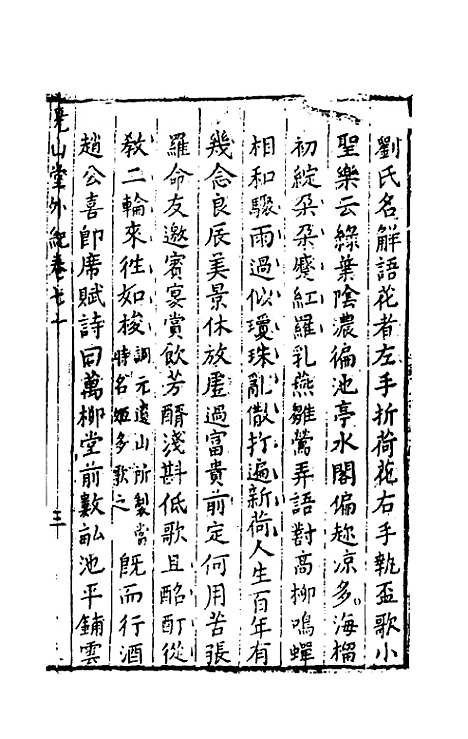 劉氏名解語花者左手折荷花右手執盃歌小
聖樂云綠葉陰濃徧池亭水閣偏趂凉多海榴
初綻朶朶蹙紅羅乳燕雛鶯弄語對高柳鳴蟬
相和驟雨過似瓊珠亂儌打遍新荷人生百年有
幾念良辰美景休放虛過富貴前定何用苦張
羅命友邀賓宴賞飲芳醑淺斟低歌且酩酊從
教二輪來徃如梭調元遺山所製當時名姬多歌之既而行酒
趙公喜即席賦詩曰萬柳堂前數畝池平鋪雲
堯山堂外紀卷七十 三